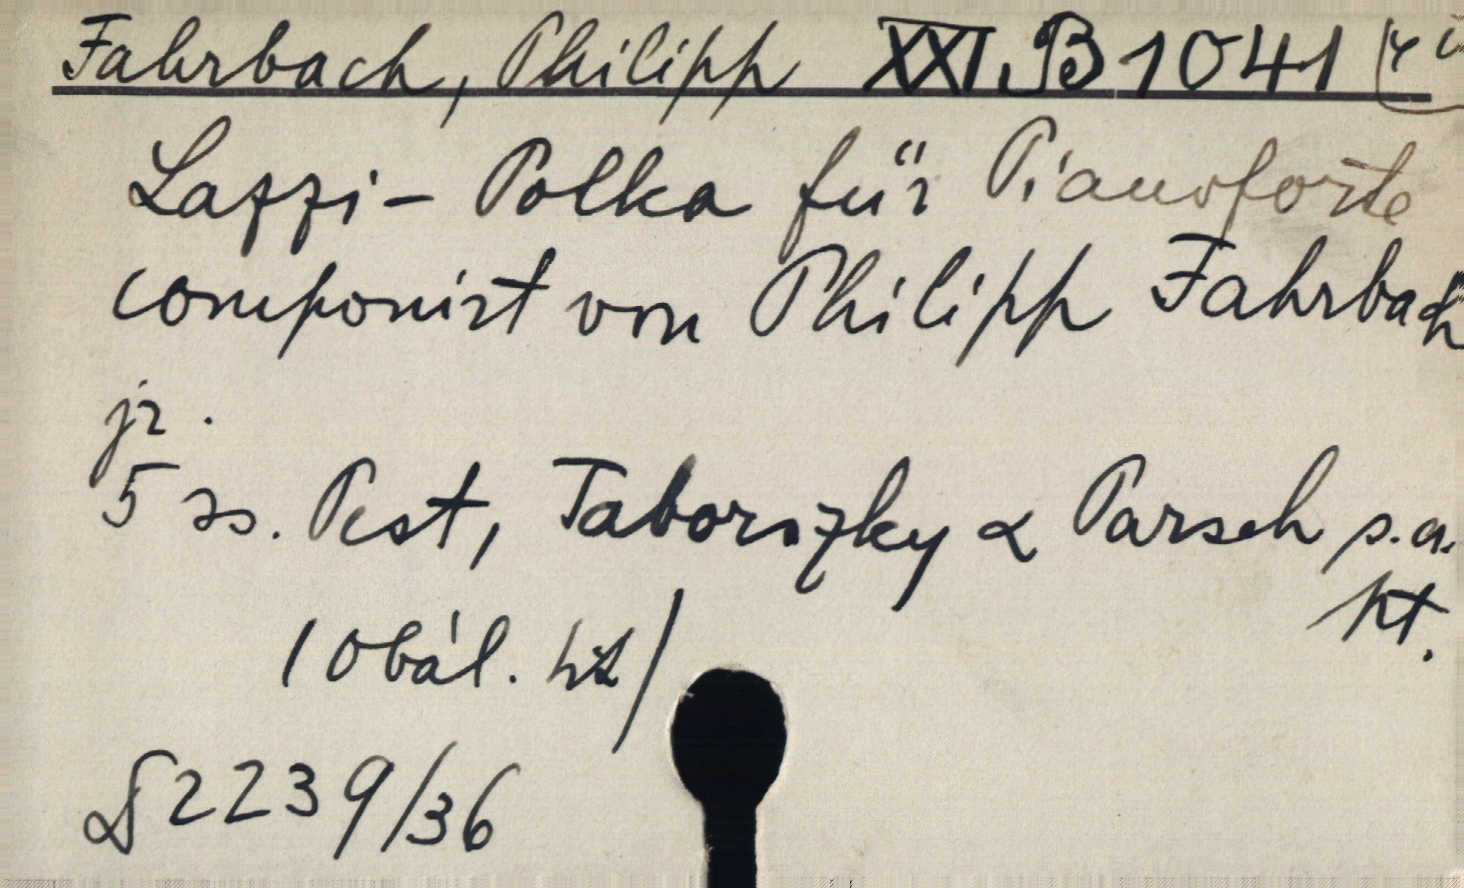 Fahrbach, Philipp XXI.B 1041
Lazzi - Polka für Pianoforte
componirt von Philipp Fahrbach
jr.
5 ss. Pest, Taborszky & Parsch s.a.
kt.
/ obál. tit /
§ 2239/36